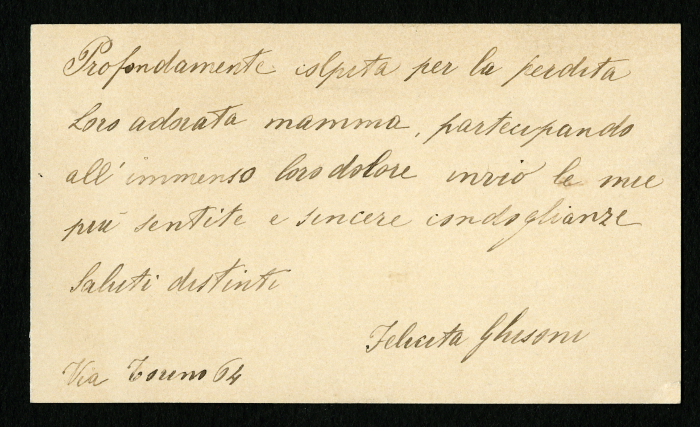 Profondamente colpita per la perdita
Loro adorata mamma, partecipando
all'immenso loro dolore invio le mie
più sentite e sincere condoglianze
Saluti distinti
Felicita Ghisoni
Via Torino 64